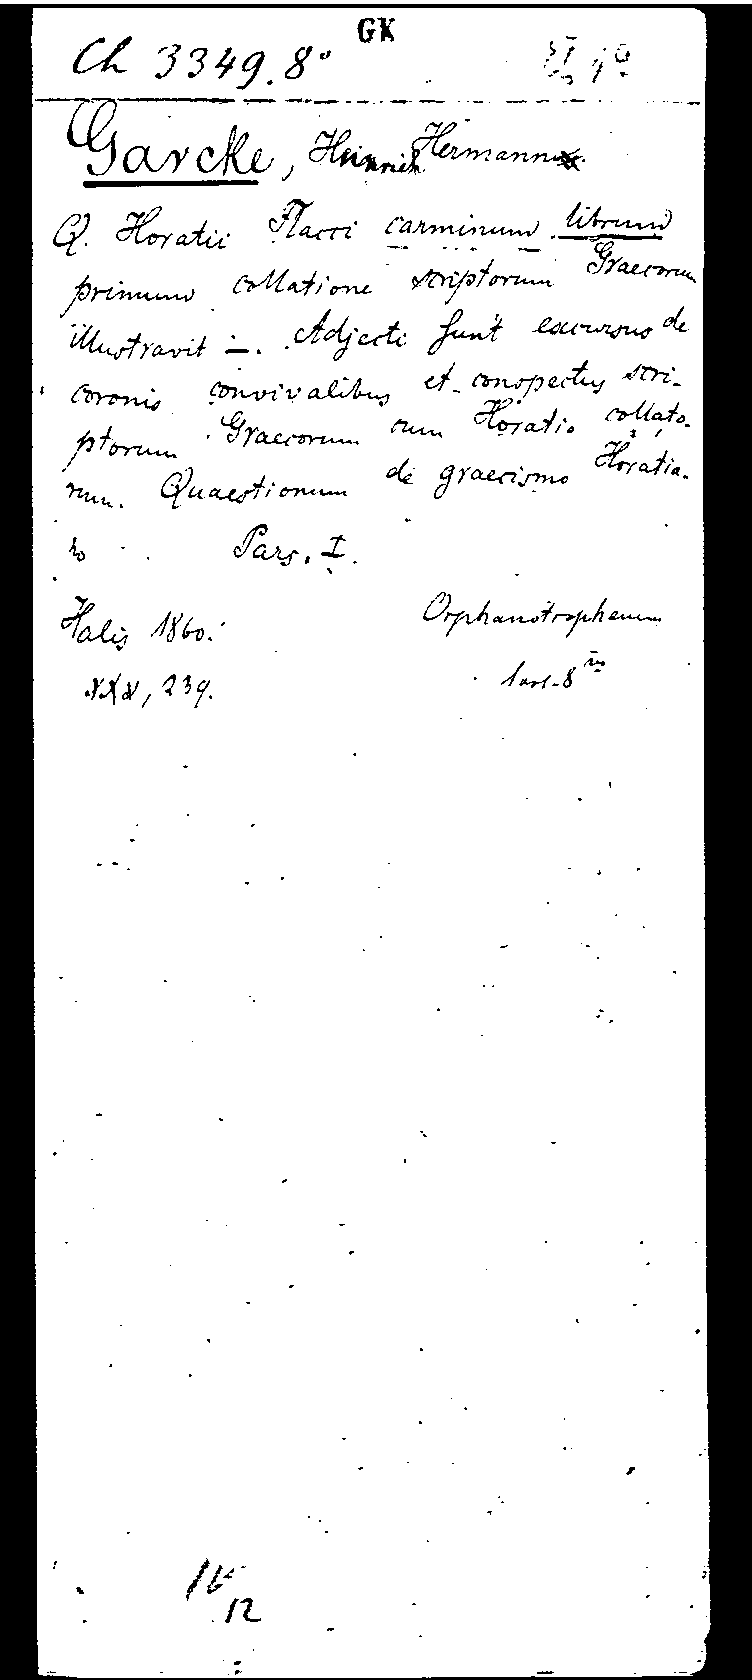 GK
Ch 3349. 8°
Garcke, Heinrich Hermann
Q. Horatii Flacci carminum librum
primum collatione scriptorum Graecorum
illustravit —. Adjecti sunt excursus de
coronis convivalibus et conspectus scri-
ptorum Graecorum cum Horatio collato-
rum. Quaestionum de graecismo Horatia-
no Pars. I.
Halis 1860. Orphanotropheum
XXX, 239. 8
12